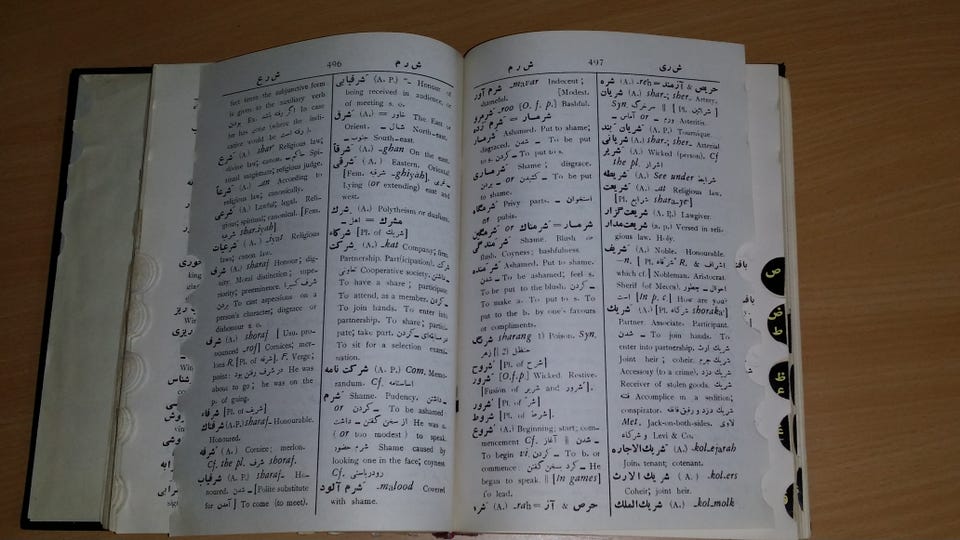 496
ش ر م
ش ر ع
fect tense the subjunctive form
is given to the auxiliary verb
بردن Ex. اگر رفته باشد In case
he has gone (where the indi-
cative is رفته است would be
شرع (A.) shar' Religious law;
divine law; canon.
sinal magistrate; religious judge.
شرعاً (A.) _.an According to
religious law; canonically.
شرعی (A.) Lawful; legal. Reli-
gious; spiritual; canonical. [Fem.
شرعیه shar.iyah]
شرعیات (A.) _.iyat Religious
laws; canon law.
شرف (A.) sharaf Honour; dig-
nity. Moral distinction; supe-
riority; preeminence.
بردن To cast aspersions on a
person's character; disgrace or
dishonour s o.
شرف (A.) sharaf [Usu. pro-
nounced _rof] Cornices; mer-
lons R. [Pl. of شرفه]. F. Verge;
point: در شرف رفتن بود He was
about to go; he was on the
p. of going.
شرفاء [Pl. of شریف]
شرفناک (A.P.) sharaf- Honourable.
Honoured.
شرفه (A.) Cornice; merlon.
Cf. the pl. شرف shoraf.
شرفیاب (A. P.) sharaf- Ho-
noured. شدن _ [Polite substitute
for آمدن] To come (to meet).
شرفیابی (A. P.) "_ Honour of
being received in audience, or
of meeting s. o.
شرق (A.) = خاور The East or
Orient. شمال _ North-east.
جنوب _ South-east.
شرقاً (A.) _.ghan On the east.
شرقی (A.) Eastern, Oriental
[Fem. شرقیه _.ghiyah]. غربی _
Lying (or extending) east and
west.
شرک (A.) Polytheism or dualism.
اهل _ = مشرک
شرکاء [Pl. of شریک]
شرکت (A.) _.kat Company; firm.
Partnership. Part(icipation). شرکت
تعاونی Cooperative society. داشتن _
To have a share; participate
To attend, as a member. کردن _
To join hands. To enter into
partnership. To share; partici-
pate; take part. در مسابقه‌ای کردن _
To sit for a selection exami-
nation.
شرکت نامه (A. P.) Com. Memo-
randum. Cf. اساسنامه
شرم Shame. Pudency. داشتن _
or کردن _ To be ashamed
از سخن گفتن داشت _ He was a-
(or too modest) to speak.
شرم حضور Shame caused by
looking one in the face; coyness
Cf. رودربایستی
شرم آلود _.malood Covered
with shame.
497
ش ر م
ش ر ی
شرم آور _.mavar Indecent;
shameful. [Modest.
شرمرو _.roo [O. f. p.] Bashful.
شرم زده = شرمسار
شرمسار Ashamed. Put to shame;
disgraced. شدن _ To be put
to s. کردن _ To put to s.
شرمساری Shame; disgrace.
بردن _ or کشیدن _ To be put
to shame.
شرمگاه Privy parts. استخوان _
Os pubis.
شرمگین or شرمناک = شرمسار
شرمندگی Shame. Blush or
flush. Coyness; bashfulness.
شرمنده Ashamed. Put to shame.
شدن _ To be ashamed; feel s.
To be put to the blush. کردن _
To make a. To put to s. To
put to the b. by one's favours
or compliments.
شرنگ sharang 1) Poison. Syn.
زهر || 2) حنظل
شروح [Pl. of شرح]
شرور [O.f.p.] Wicked. Restive.
[Fusion of شریر and شرور].
شرور [Pl. of شر].
شروط [Pl. of شرط].
شروع (A.) Beginning; start; com-
mencement Cf. آغاز || شدن _
To begin vi. کردن _ To b. or
commence: کرد بسخن گفتن _ He
began to speak. || [In games]
To lead.
شره (A.) _.rah = آز & حرص
شره (A.) _.reh = آزمند & حریص
شریان (A.) shar.; sher. Artery.
Syn. سرخرگ || [Pl. شرایین]
آماس _ or ورم _ Arteritis.
شریان بند (A. P.) Tourniquet.
شریانی (A.) shar.; sher. Arterial
شریر (A.) Wicked (person). Cf
the pl. اشرار
شریطه (A.) See under شرایط
شریعت (A.) _.at Religious law.
[Pl. شرایع shara_ye']
شریعت گزار (A. P.) Lawgiver.
شریعت‌مدار (a. p.) Versed in reli-
gious law. Holy.
شریف (A.) Noble. Honourable.
—n. [Pl. شرفاء R. & اشراف
which cf.] Nobleman. Aristocrat.
Sherif (of Mecca). احوال _ چطور
است [In p. c.] How are you?
شریک (A.) [Pl. شرکاء shoraka']
Partner. Associate. Participant.
شدن _ To join hands. To
enter into partnership. شریک ارث
Joint heir; coheir. شریک جرم
Accessory (to a crime). شریک دزد
Receiver of stolen goods. شریک
فتنه Accomplice in a sedition;
conspirator. شریک دزد و رفیق قافله
Met. Jack-on-both-sides. لاوی
و شرکاء Levi & Co.
شریک الاجاره (A.) _.kol_ejarah
Joint tenant; cotenant.
شریک الارث (A.) _.kol_ers
Coheir; joint heir.
شریک الملک (A.) _.kol_molk
ص
ض
ط
ظ
ع
غ